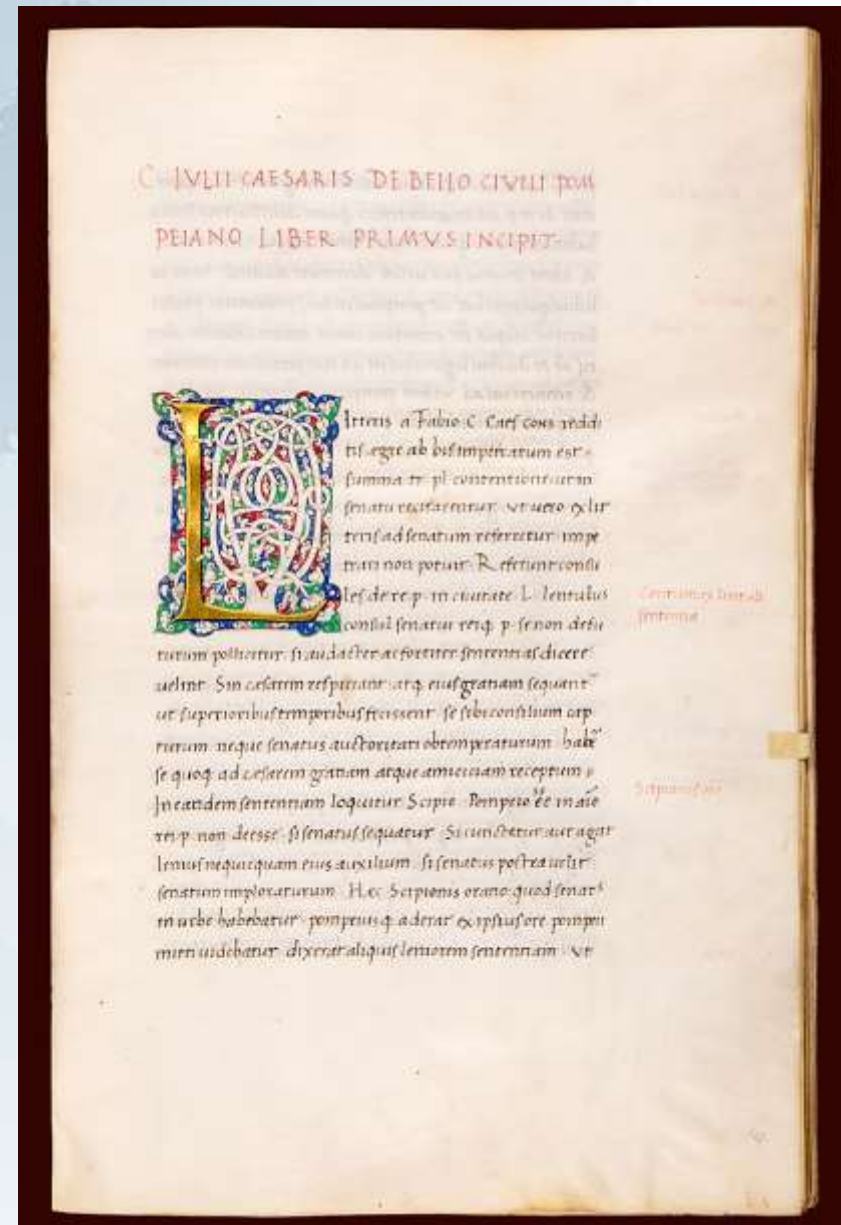 C IVLII CAESARIS DE BELLO CIVILI POM
PEIANO LIBER PRIMVS INCIPIT
Litteris a Fabio C Caes cons reddi
tis egre ab his impetratum est
summa tr pl contentione ut in
senatu recitarentur ut uero ex lit
teris ad senatum referretur impe
trari non potuit Referunt consu
les de re p in ciuitate L lentulus
consul senatui reiq p se non defu
turum pollicetur si audacter ac fortiter sententias dicere
uelint Sin cesarem respiciant atq eius gratiam sequant
ut superioribus temporibus fecissent se sibi consilium cap
turum neque senatus auctoritati obtemperaturum habe
se quoq ad cesarem gratiam atque amiciciam receptum
In eandem sententiam loquitur Scipio Pompeio ee in aio
rei p non deesse si senatus sequatur Si cunctetur aut agat
lenius nequicquam eius auxilium si senatus postea uelit
senatum imploraturum Hec Scipionis oratio quod senat
in urbe habebatur pompeiusq aderat ex ipsius ore pompeii
mitti uidebatur dixerat aliquis leniorem sententiam ut
sententia